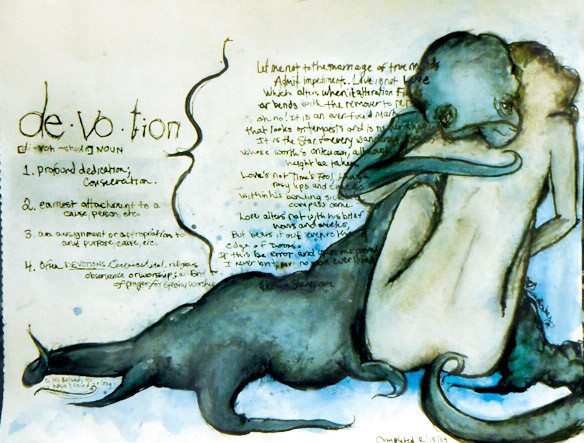 de·vo·tion
NOUN
1. profound dedication;
consecration.
2. earnest attachment to a
cause, person, etc
3. an assignment or appropriation to
any purpose, cause, etc.
4. Often DEVOTIONS.
observance or worship; a form
of prayer for special worship
Let me not to the marriage of true minds
Admit impediments. Love is not love
Which alters when it alteration finds
or bends with the remover to
oh no! It is an ever-fixed mark
that looks on tempests and is never
It is the star to every wandering
whose worth's unknown, although
height be taken
Love's not Time's Fool, though
rosy lips and cheeks
within his bending sickle's
compass come
Love alters not with his brief
hours and weeks,
But bears it out even to the
edge of Doom.
If this be error and upon me
I never writ, nor no man ever loved
William Shakespeare
completed 2/15/